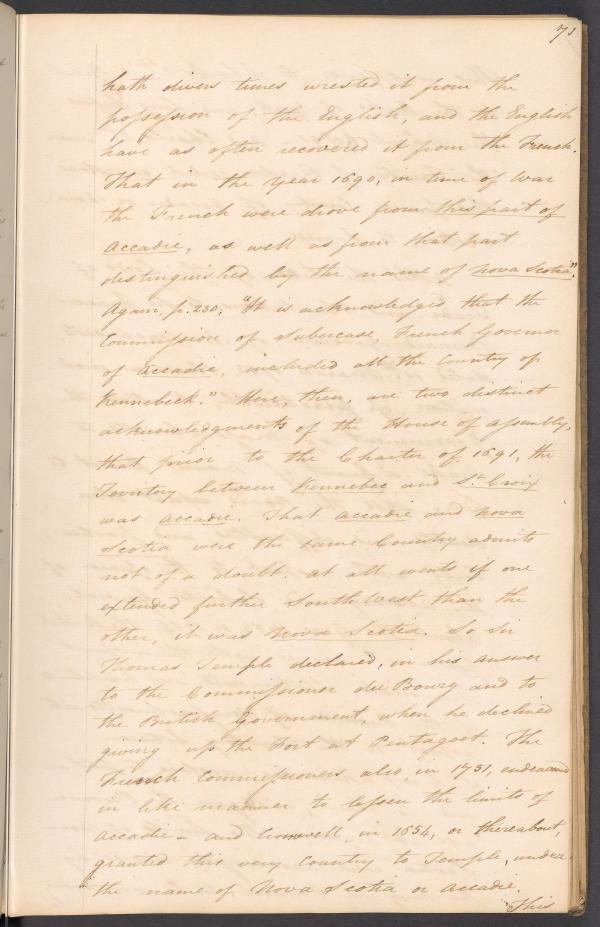 71
hath divers times wrested it from the
possession of the English, and the English
have as often recovered it from the French.
That in the year 1690, in time of War
the French were drove from this part of
Accadie, as well as from that part
distinguished by the name of Nova Scotia."
Again, p. 230; "It is acknowledged that the
Commission of Subercase, French Governor
of Accadie, included all the Country of
Kennebeck." Here, then, are two distinct
acknowledgments of the House of Assembly,
that prior to the Charter of 1691, the
Territory between Kennebec and St. Croix
was Accadie. That Accadie and Nova
Scotia were the same Country admits
not of a doubt. At all events if one
extended further South West than the
other, it was Nova Scotia. So Sir
Thomas Temple declared, in his answer
to the Commissioner du Bourg and to
the British Government, when he declined
giving up the Fort at Pentagoet. The
French Commissioners also, in 1751, endeavored
in like manner to lessen the limits of
Accadie - and Cromwell, in 1654, or thereabout,
granted this very Country to Temple, under
the name of Nova Scotia or Accadie.
This